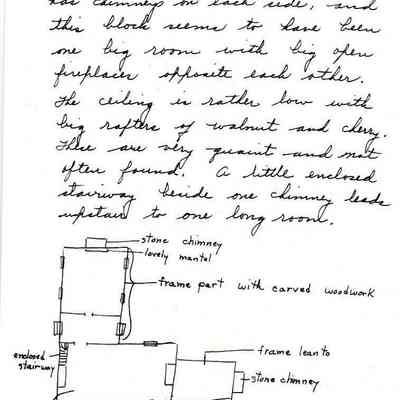 has chimneys on each side, and
this block seems to have been
one big room with big open
fireplaces opposite each other.
The ceiling is rather low with
big rafters of walnut and cherry.
These are very quaint and not
often found. A little enclosed
stairway beside one chimney leads
upstair to one long room.
stone chimney
lovely mantel
frame part with carved woodwork
enclosed
stairway
frame leanto
stone chimney